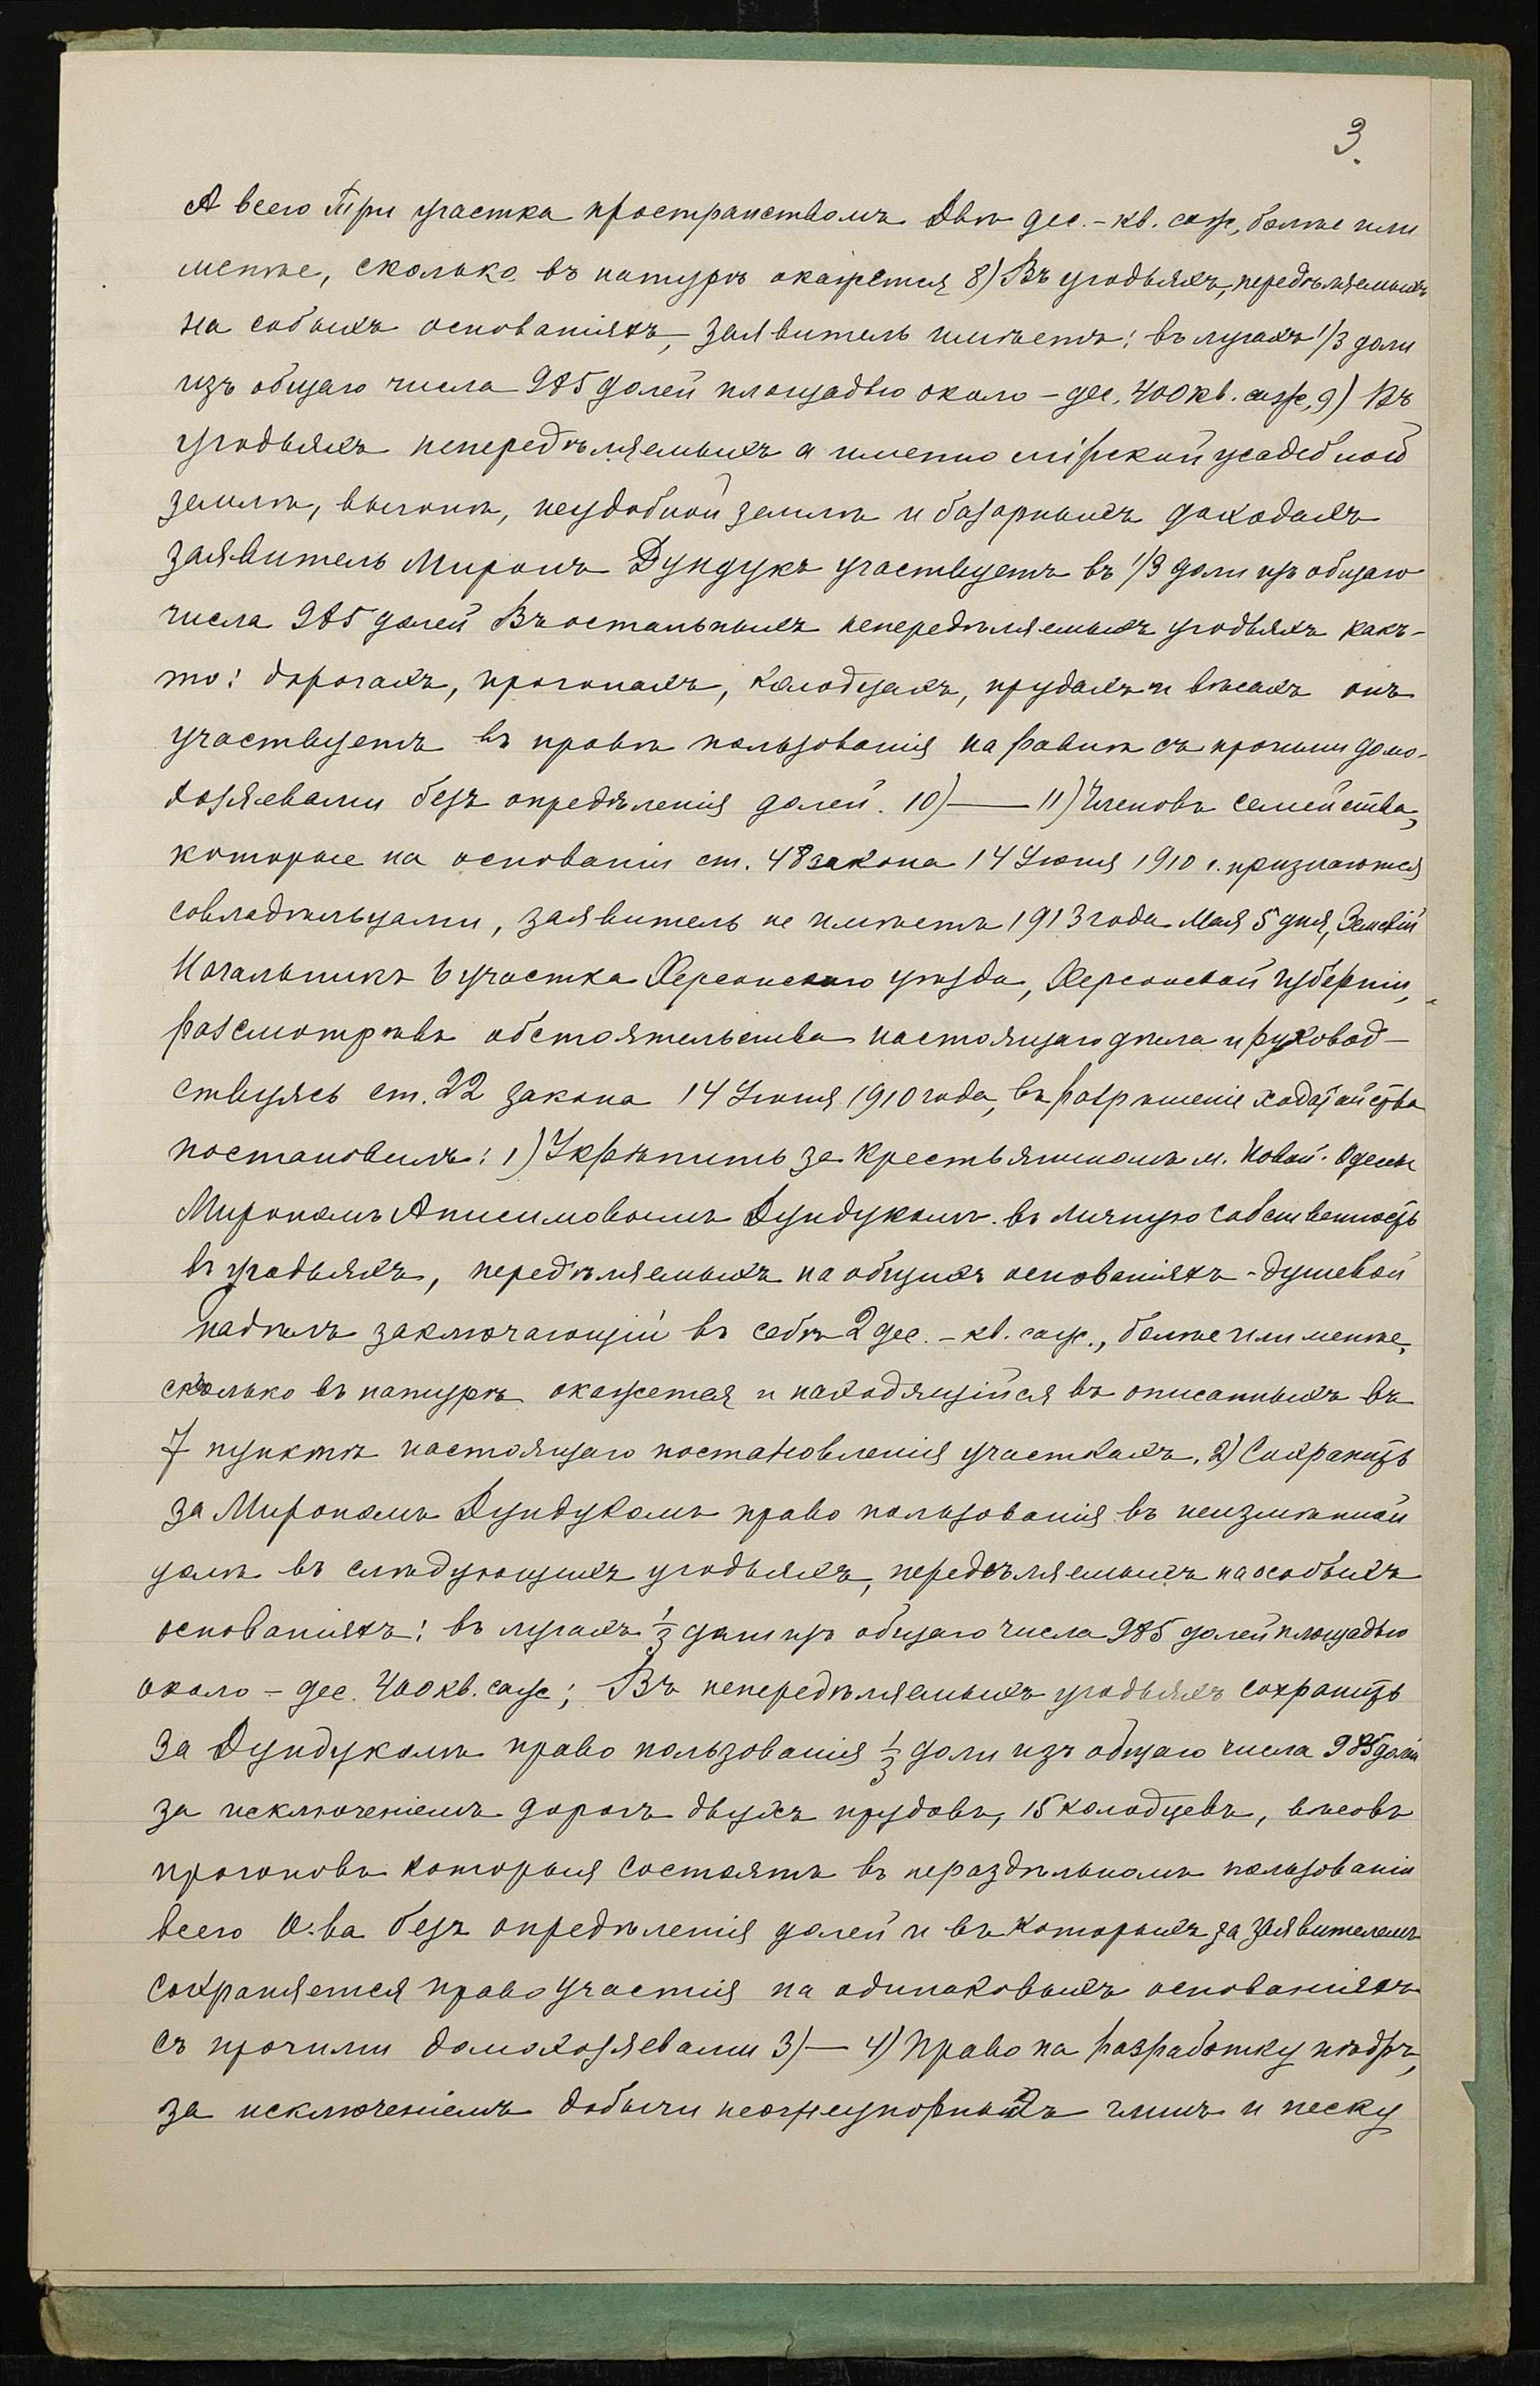 3.
А всего три участка пространствомъ двѣ дес. – кв. саж., болѣе или
менѣе, сколько въ натурѣ окажется 8) Въ угодьяхъ, передѣляемыхъ
на собыхъ основаніяхъ, заявитель имѣетъ: въ лугахъ 1/3 доли
изъ общаго числа 985 долей площадью около – дес. 400 кв. саж, 9) Въ
угодьяхъ непередѣляемыхъ а именно мірской усадебной
землѣ, выгонѣ, неудобной землѣ и базарныхъ доходахъ
заявитель Миронъ Дундукъ участвуетъ въ 1/3 доли изъ общаго
числа 985 долей Въ остальныхъ непередѣляемыхъ угодьяхъ какъ-
то: дорогахъ, прогонахъ, колодцахъ, прудахъ и вѣсахъ онъ
участвуетъ въ правѣ пользованія на равнѣ съ прочими домо-
хозяевами безъ опредѣленія долей. 10) — 11) Членовъ семейства,
которые на основаніи ст. 48 закона 14 Іюня 1910 г. признаются
совладѣльцами, заявитель не имѣетъ 1913 года Мая 5 дня, Земскій
Начальникъ 6 участка Херсонскаго уѣзда, Херсонской губерніи,
разсмотрѣвъ обстоятельства настоящаго дѣла и руковод-
ствуясь ст. 22 закона 14 Іюня 1910 года, въ разрѣшеніе ходатайства
постановилъ: 1) Укрѣпить за крестьяниномъ м. Новой-Одессы
Мирономъ Анисимовымъ Дундукомъ въ личную собственность
въ угодьяхъ, передѣляемыхъ на общихъ основаніяхъ - душевой
надѣлъ заключающій въ себѣ 2 дес. – кв. саж., болѣе или менѣе,
сколько въ натурѣ окажется и находящійся въ описанныхъ въ
7 пунктѣ настоящаго постановленія участкахъ. 2) Сохранить
за Мирономъ Дундукомъ право пользованія въ неизмѣнной
долѣ въ слѣдующихъ угодьяхъ, передѣляемыхъ на особыхъ
основаніяхъ: въ лугахъ 1/3 доли изъ общаго числа 985 долей площадью
около – дес. 400 кв. саж; Въ непередѣляемыхъ угодьяхъ сохранить
за Дундукомъ право пользованія 1/3 доли изъ общаго числа 985 долей
за исключеніемъ дорогъ двухъ прудовъ, 15 колодцевъ, вѣсовъ
прогоновъ которыя состоятъ въ нераздѣльномъ пользованіи
всего О-ва безъ опредѣленія долей и въ которыхъ за заявителемъ
сохраняется право участія на одинаковыхъ основаніяхъ
съ прочими домохозяевами 3) — 4) Право на разработку нѣдръ,
за исключеніемъ добычи неогнеупорныхъ глинъ и песку